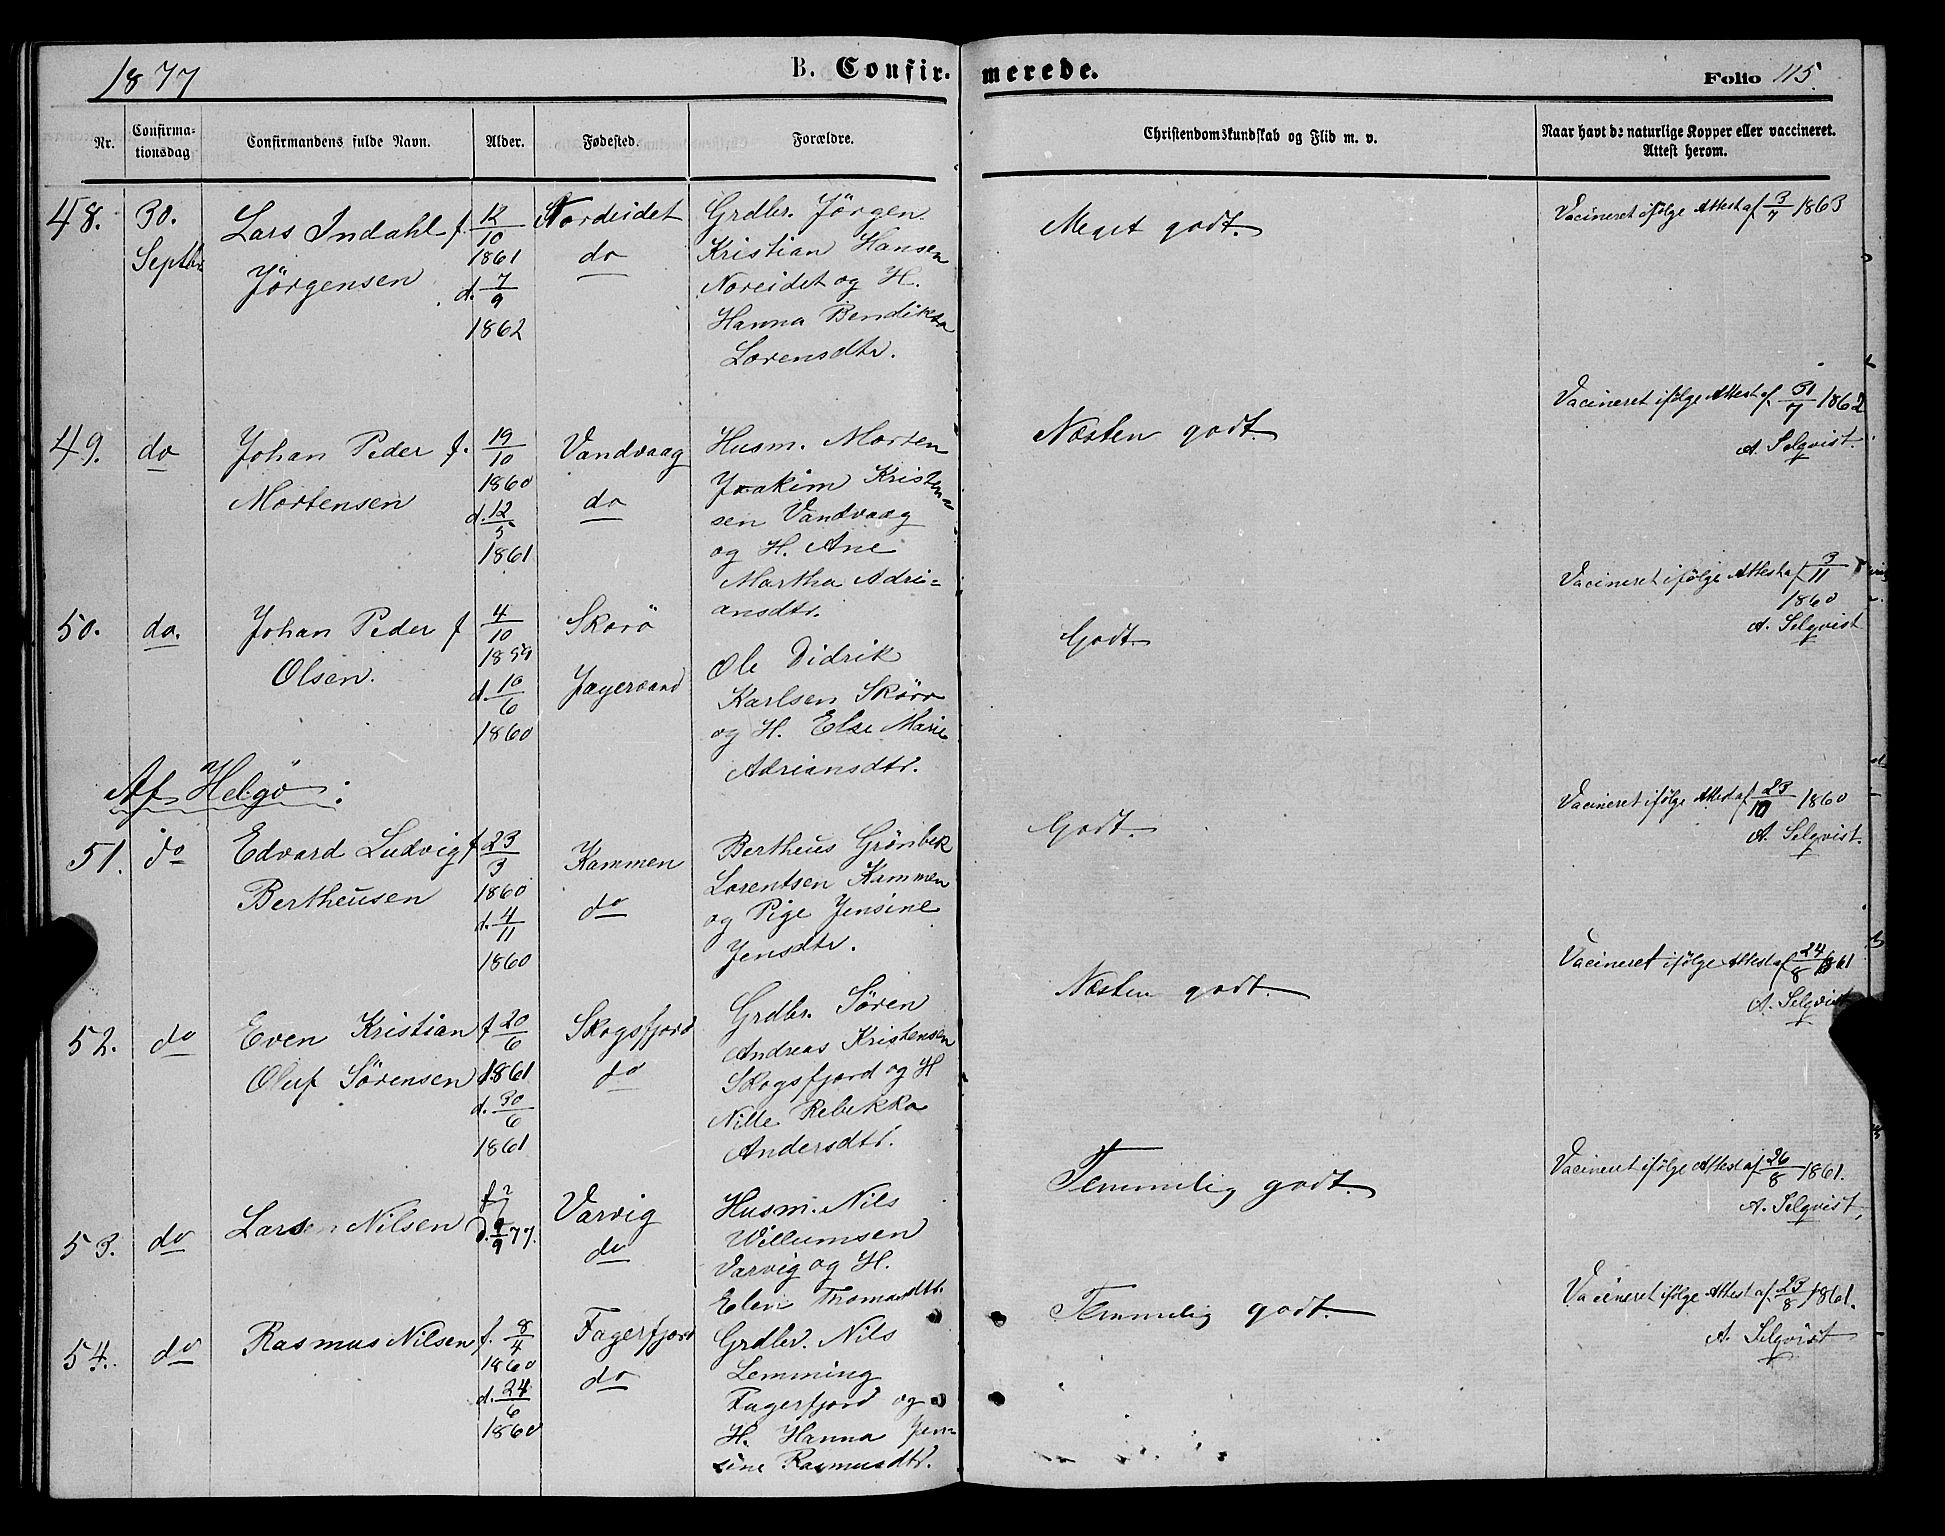 1877
B. Confirmerede.
Folio 115.
Nr.
Confirmationsdag
Confirmandens fulde Navn.
Alder.
Fødested.
Forældre.
Christendomskundskab og Flid m. v.
Naar havt de naturlige Kopper eller vaccineret.
Attest herom.
48.
30.
Septbr
Lars Indahl
Jörgensen
f. 12/10
1861
d. 7/9
1862
Nordeidet
do
Grdbr. Jörgen
Kristian Hansen
Noreidet og H.
Hanna Bendikta
Lorensdtr.
Meget godt.
Vacineret ifölge Attest af 3/7 1863
49.
do
Johan Peder
Mortensen
f. 19/10
1860
d. 12/5
1861
Vandvaag
do
Husm. Morten
Joakim Kristen-
sen Vandvaag
og H. Ane
Martha Adri-
ansdtr.
Næsten godt.
Vacineret ifölge Attest af 31/7 1862
A. Selqvist.
50.
do.
Johan Peder
Olsen.
f 4/10
1859
d. 10/6
1860
Skorö
Jægervand
Ole Didrik
Karlsen Skorö
og H. Else Marie
Adriansdtr.
Godt.
Vacineret ifölge Attest af 3/11
1860
A. Selqvist
Af Helgö:
51.
do
Edvard Ludvig
Bertheusen
f 23/3
1860
d. 4/11
1860
Kammen
do
Bertheus Grönbek
Lorentsen Kammen
og Pige Jensine
Jensdtr.
Godt.
Vacineret ifölge Attest af 23/10 1860
A. Selqvist.
52.
do
Even Kristian
Oluf Sörensen
f 20/6
1861
d. 30/6
1861
Skogsfjord
do
Grdbr. Sören
Andreas Kristensen
Skogsfjord og H
Nille Rebekka
Andersdtr.
Næsten godt.
Vacineret ifölge Attest af 24/8 1861
A. Selqvist
53.
do
Lars Nilsen
f ?
d. 9/9 77.
Varvig
do
Husm. Nils
Willumsen
Varvig og H.
Elen Thomasdtr.
Temmelig godt.
Vacineret ifölge Attest af 26/8 1861.
A. Selqvist,
54.
do
Rasmus Nilsen
f. 8/4
1860
d. 24/6
1860
Fagerfjord
do
Grdbr. Nils
Lemming
Fagerfjord og
H. Hanna Jen-
sine Rasmusdtr.
Temmelig godt.
Vacineret ifölge Attest af 23/8 1861.
A. Selqvist